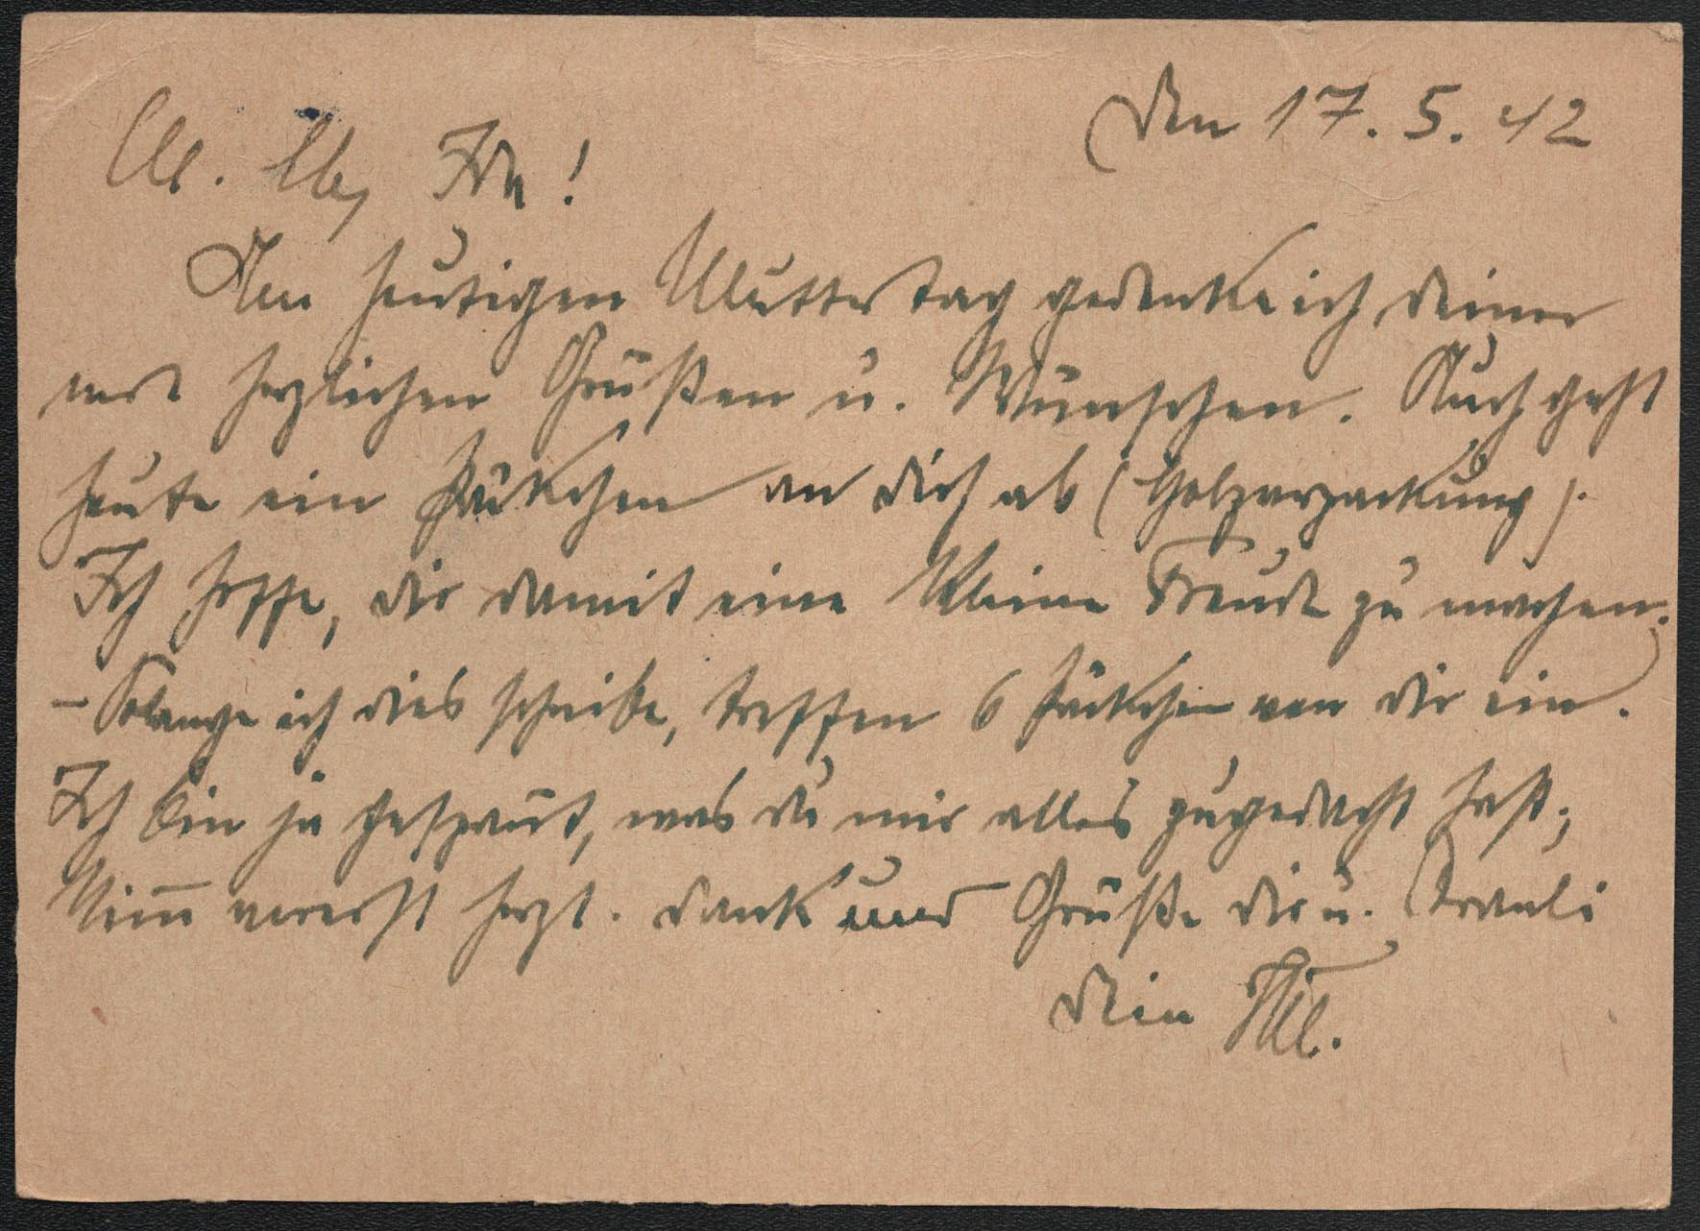 Den 17.5.42
Am heutigen Muttertag gedenke ich deiner
mit herzlichen Grüßen u. Wünschen. Auch geht
heute ein Päckchen an dich ab (Holzverpackung).
Ich hoffe, dir damit eine kleine Freude zu machen.
– Solange ich dies schreibe, treffen 6 Päckchen von dir ein.
Ich bin ja gespannt, was du mir alles zugedacht hast;
Nimm vorerst herzl. Dank und Grüße dir u. Trauli
dein